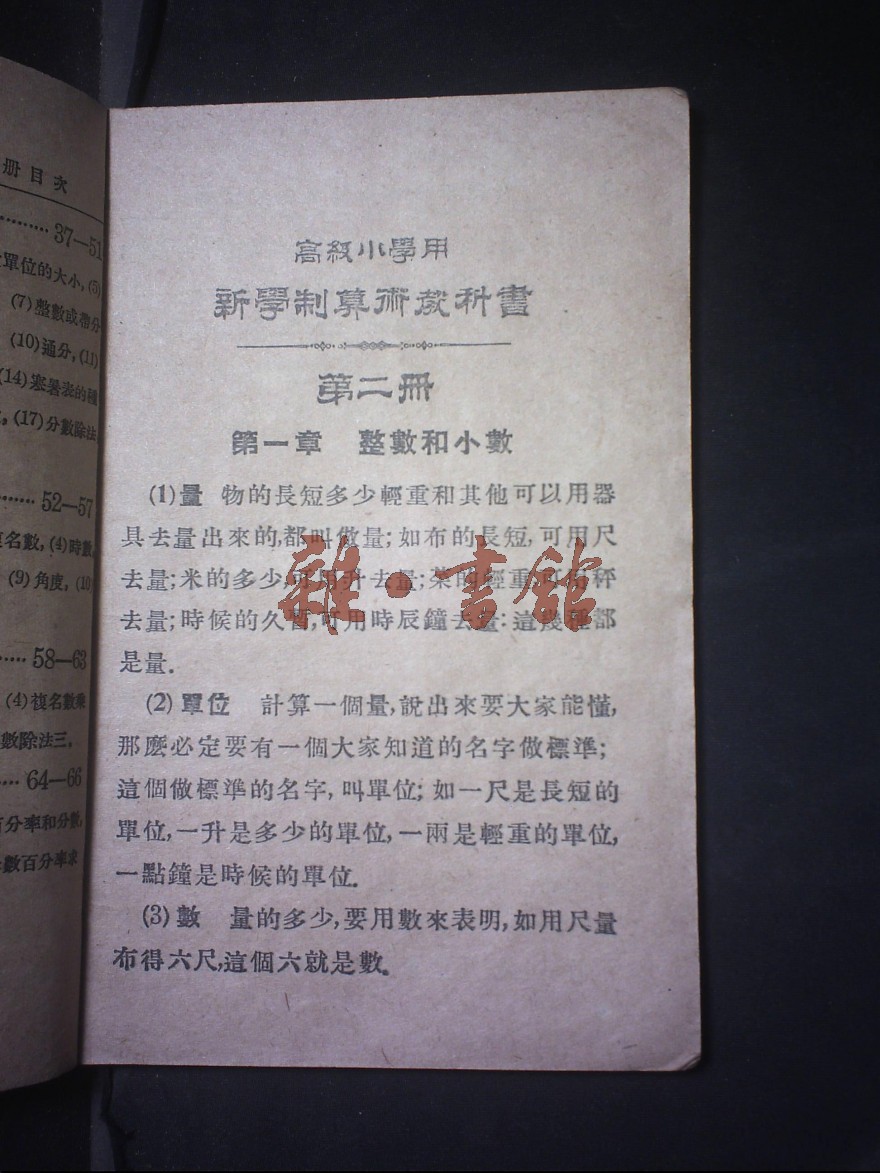 冊目次
37—51
單位的大小,(5)
(7)整數或帶分
(10)通分,(11)
(14)寒暑表的種
(17)分數除法
52—57
名數,(4)時數
(9)角度,(10)
58—63
(4)複名數乘
數除法三,
64—66
百分率和分數,
數百分率求
高級小學用
新學制算術教科書
第二冊
第一章 整數和小數
(1)量 物的長短多少輕重和其他可以用器
具去量出來的,都叫做量;如布的長短,可用尺
去量;米的多少,可用升去量;菜的輕重,可用秤
去量;時候的久暫,可用時辰鐘去量:這幾種都
是量.
(2)單位 計算一個量,說出來要大家能懂,
那麼必定要有一個大家知道的名字做標準;
這個做標準的名字,叫單位;如一尺是長短的
單位,一升是多少的單位,一兩是輕重的單位,
一點鐘是時候的單位.
(3)數 量的多少,要用數來表明,如用尺量
布得六尺,這個六就是數.
雜·書館